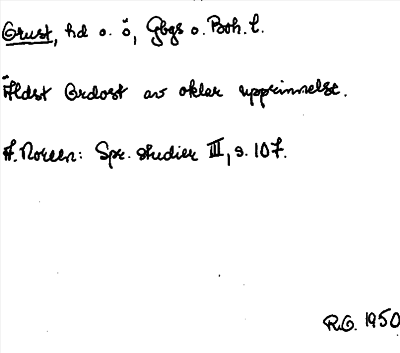 Grust, hd o. ö, Gbgs o. Boh. l.
Äldst Grdost av oklar upprinnelse.
A. Noreen: Spr. studier III, s. 107.
R.G. 1950